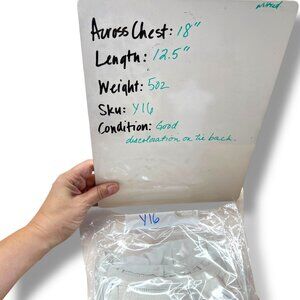 Across Chest: 18"
Length: 12.5"
Weight: 5oz
Sku: Y16
Condition: Good
discoloration on tie back.
Y16